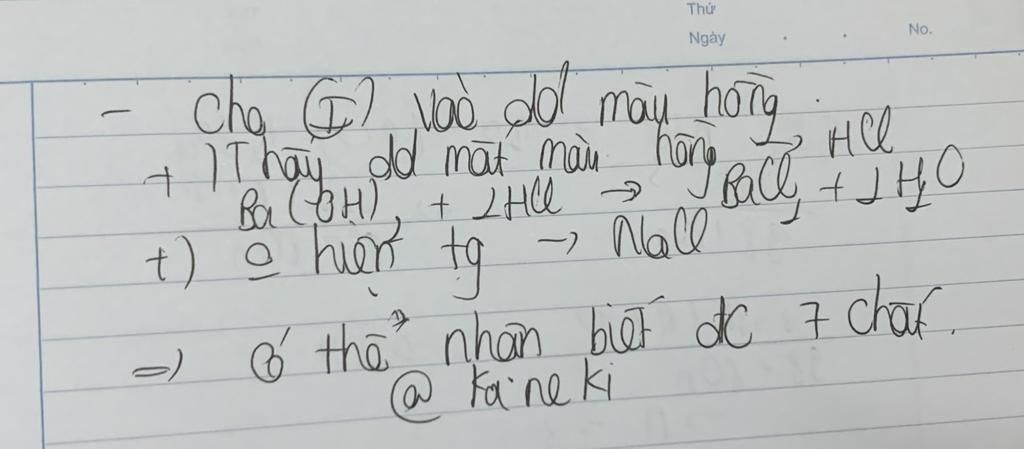 Thứ
Ngày . . No.
- Cho (I) vào dd màu hồng.
+) Thấy dd mất màu hồng → HCl
Ba(OH)₂ + 2HCl → BaCl₂ + 2H₂O
+) 0 hiện tg → NaCl
=) Có thể nhận biết đc 7 chất.
@ Ka ne ki